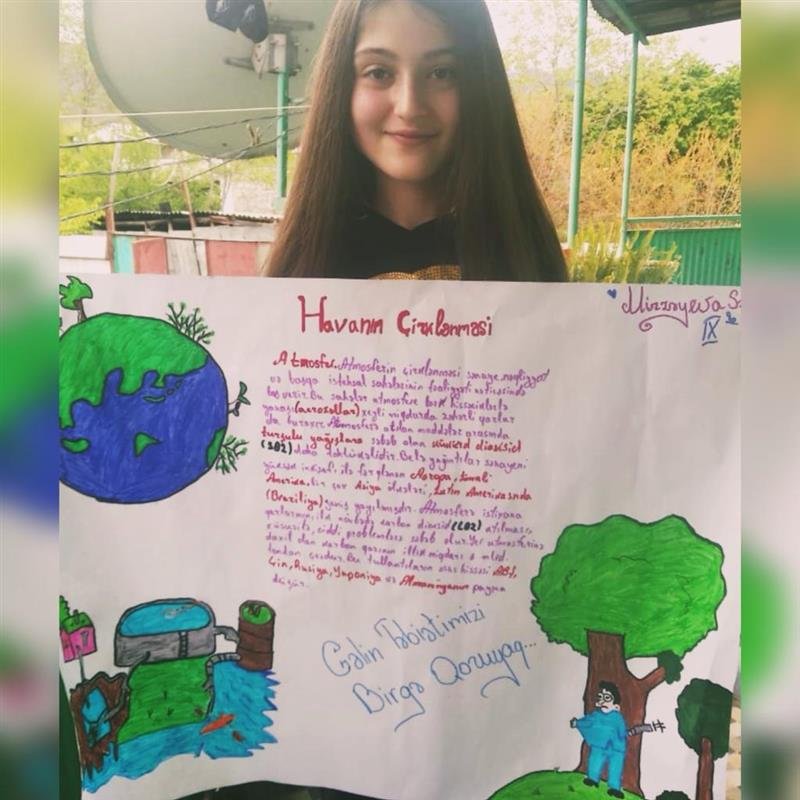 Havanın Çirklənməsi
Mirzəyeva S.
IX
Atmosfer. Atmosferin çirklənməsi sənaye, nəqliyyat
və başqa istehsal sahələrinin fəaliyyəti nəticəsində
baş verir. Bu sahələr atmosferə bərk hissəciklərlə
yanaşı (aerozollar) xeyli miqdarda zəhərli qazlar
da buraxır. Atmosferə atılan maddələr arasında
turşulu yağışlara səbəb olan sulfurd dioksid
(SO2) daha təhlükəlidir. Belə yağıntılar sənayeni
yüksək inkişafı ilə fərqlənən Avropa, Şimali
Amerika, bir çox Asiya ölkələri, Latın Amerikasında
(Braziliya) geniş yayılmışdır. Atmosferə istixana
qazlarının, ilk növbədə karbon dioksid (CO2) atılması,
xüsusilə, ciddi problemlərə səbəb olur. Yer atmosferinə
daxil olan karbon qazının illik miqdarı 6 mlrd.
tondan çoxdur. Bu tullantıların əsas hissəsi ABŞ,
Çin, Rusiya, Yaponiya və Almaniyanın payına
düşür.
Gəlin Təbiətimizi
Birgə Qoruyaq...